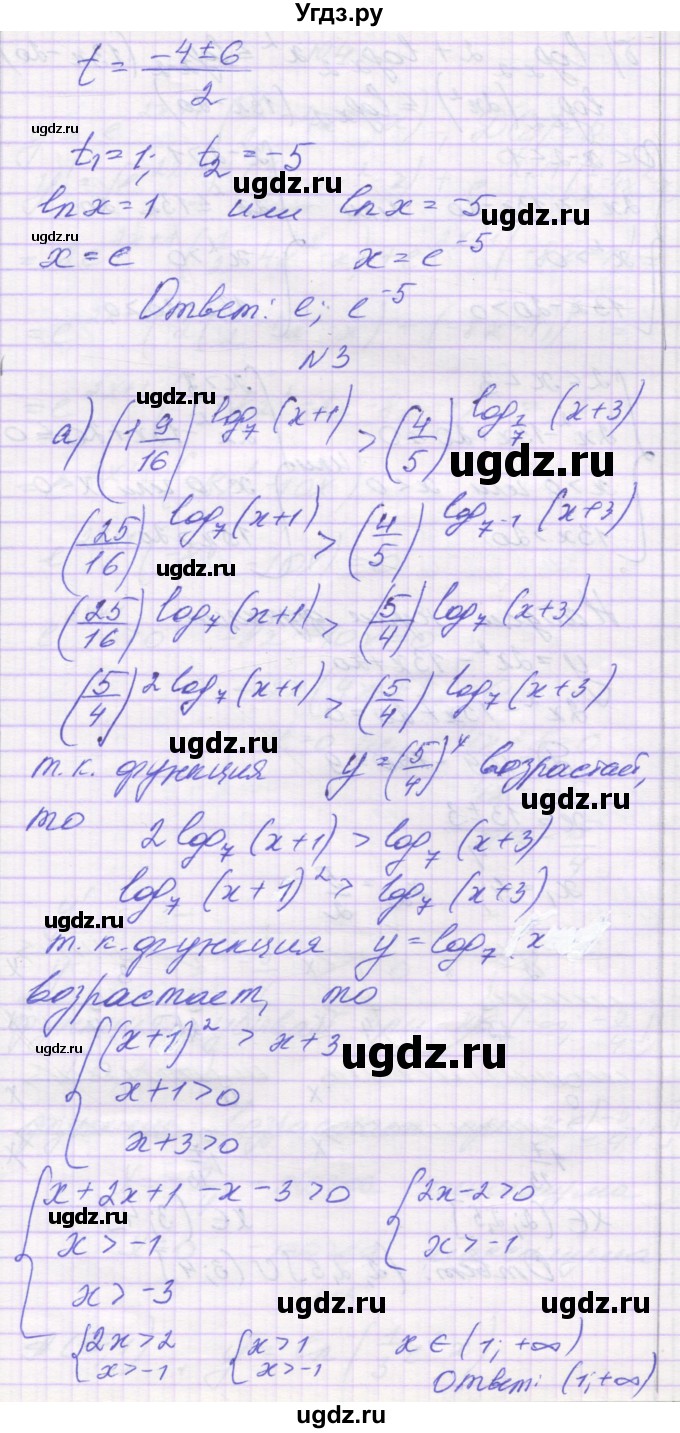 Угдз.ру
t = (-4 ± 6)/2
ugdz.ru
t₁ = 1; t₂ = -5
ugdz.ru
ugdz.ru
ln x = 1 или ln x = -5
ugdz.ru
ugdz.ru
x = e x = e⁻⁵
Ответ: e; e⁻⁵
N3
ugdz.ru
а) (1 9/16)^(log₇ (x+1)) > (4/5)^(log_(1/7) (x+3))
ugdz.ru
(25/16)^(log₇ (x+1)) > (4/5)^(log_(7⁻¹) (x+3))
ugdz.ru
(25/16)^(log₇ (x+1)) > (5/4)^(log₇ (x+3))
(5/4)^(2 log₇ (x+1)) > (5/4)^(log₇ (x+3))
ugdz.ru
т.к. функция y = (5/4)^x возрастай,
ugdz.ru
то 2 log₇ (x+1) > log₇ (x+3)
log₇ (x+1)² > log₇ (x+3)
ugdz.ru
т.к. функция y = log₇ x
возрастает, то
ugdz.ru
{ (x+1)² > x+3
ugdz.ru
x+1>0
x+3>0
{ x+2x+1 -x-3>0 { 2x-2>0
ugdz.ru
x > -1 x > -1
x > -3
ugdz.ru
ugdz.ru
{ 2x>2 { x>1 x ∈ (1; +∞)
x>-1 x>-1
Ответ: (1; +∞)
ugdz.ru